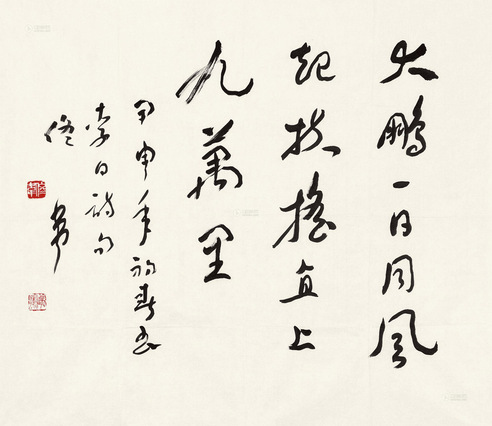 大鵬一日同風
起扶搖直上
九萬里
甲申年初春书
李白詩句